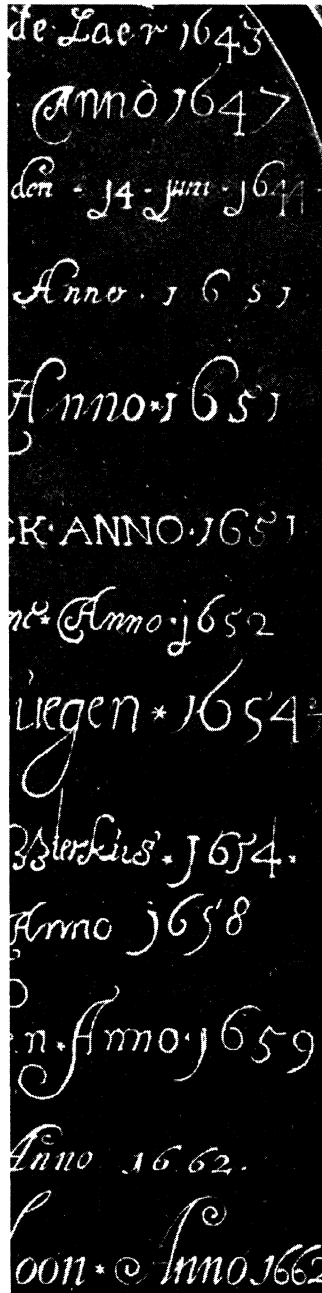 de Laer 1643
Anno 1647
den - 14 - juni - 1644 -
Anno · 1651
Anno * 1651
CK · ANNO · 1651
Anno · 1652
uegen * 1654
1654 ·
Anno 1658
en * Anno · 1659
Anno 1662 ·
oon * Anno 1662